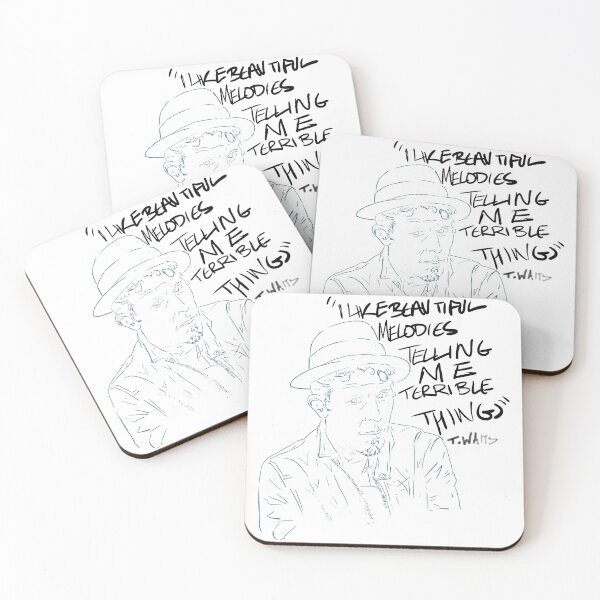 "I LIKE BEAUTIFUL
MELODIES
TELLING
ME
TERRIBLE
"I LIKE BEAUTIFUL
MELODIES
TELLING
ME
TERRIBLE
THINGS"
T. WAITS
"I LIKE BEAUTIFUL
MELODIES
TELLING
ME
TERRIBLE
THINGS"
T. WAITS
"I LIKE BEAUTIFUL
MELODIES
TELLING
ME
TERRIBLE
THINGS"
T. WAITS